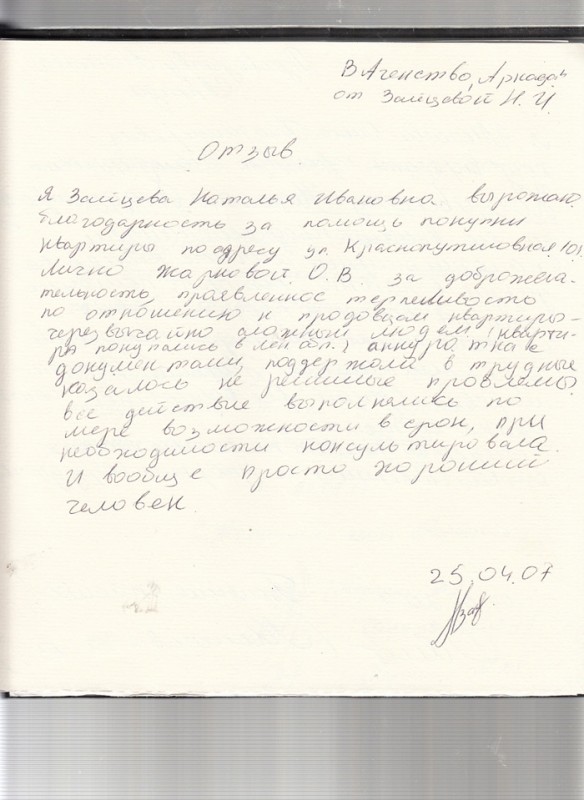 В Агенство „Аркада"
от Зайцевой Н. И.
Отзыв.
Я Зайцева Наталья Ивановна выражаю
благодарность за помощь покупки
квартиры по адресу ул. Краснопутиловная 101
Лично Жарновой О. В. за доброжела-
тельность, проявленное терпеливость
по отношению к продовцам квартиры-
черезвычайно сложным людем (кварти-
ра покупались в Лен обл.) аккуратная с
документами, поддержала в трудные
казалось не решимые проблемы.
Все действие выполнялись по
мере возможности в срок, при
необходимости консультировала.
И вообще просто хороший
человек.
25.04.07